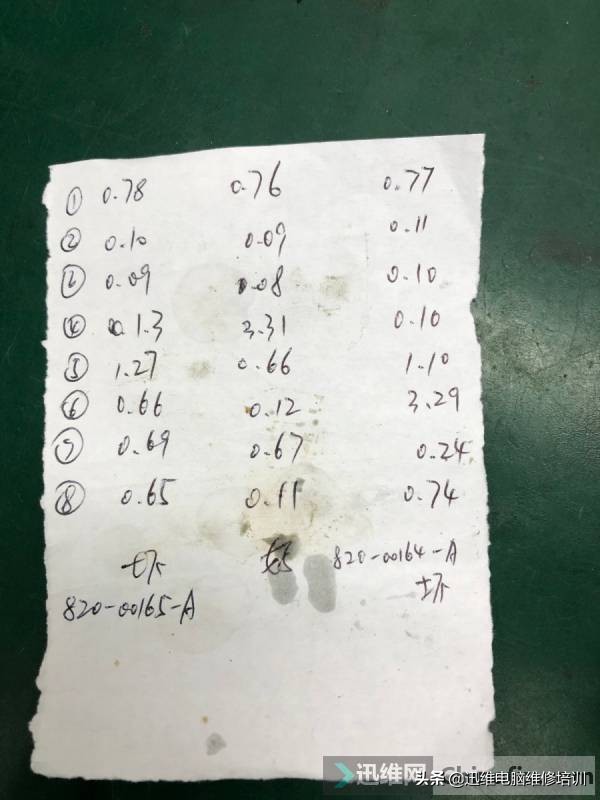 ① 0.78 0.76 0.77
② 0.10 0.09 0.11
③ 0.09 0.08 0.10
④ 0.13 3.31 0.10
⑤ 1.27 0.66 1.10
⑥ 0.66 0.12 3.29
⑦ 0.69 0.67 0.24
⑧ 0.65 0.11 0.74
坏 好 820-00164-A
坏
820-00165-A
迅维网
头条 @迅维电脑维修培训